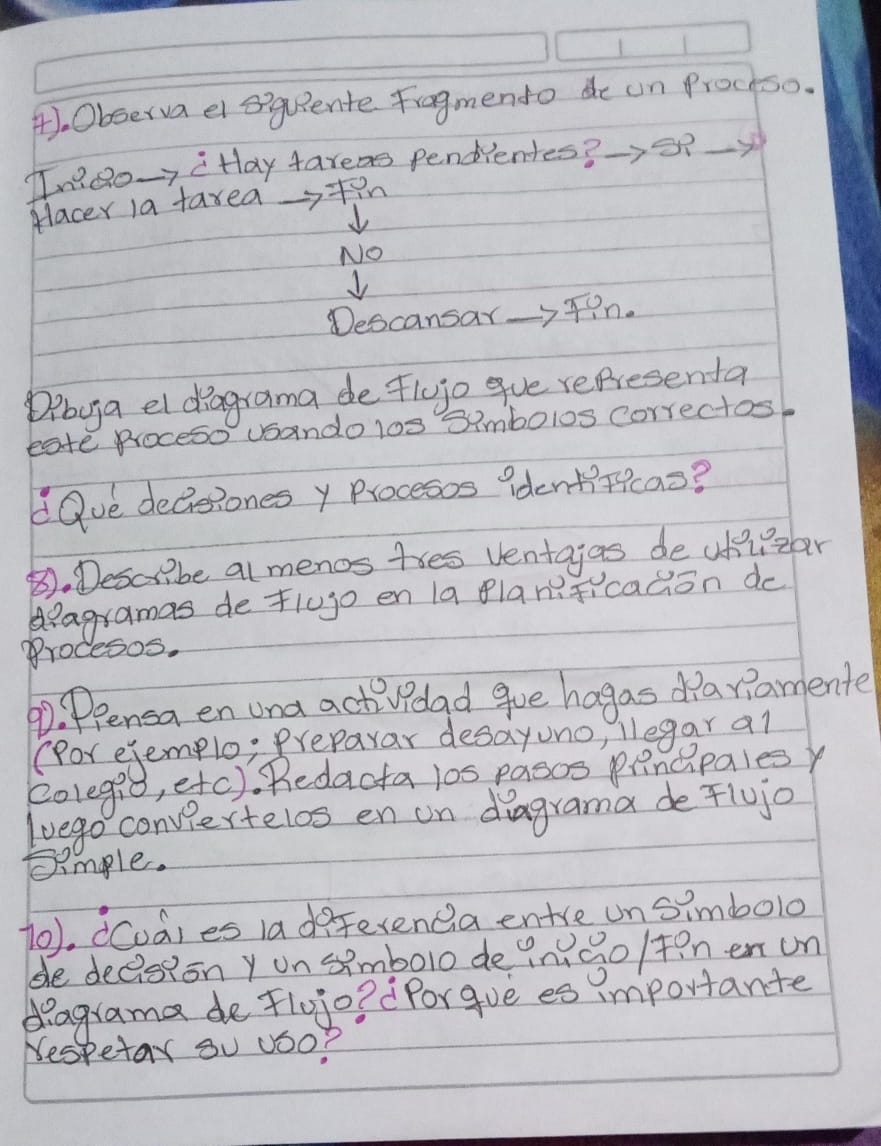 7). Observa el siguiente Fragmento de un Proceso.
Inicio → ¿Hay tareas pendientes? → Si →
Hacer la tarea → Fin
↓
No
↓
Descansar → Fin.
Dibuja el diagrama de Flujo que representa
este proceso usando los simbolos correctos.
¿Qué decisiones y Procesos identificas?
8). Describe al menos tres ventajas de utilizar
diagramas de Flujo en la planificación de
Procesos.
9). Piensa en una actividad que hagas diariamente
(Por ejemplo; Preparar desayuno, llegar al
colegio, etc). Redacta los pasos principales y
luego conviertelos en un diagrama de Flujo
simple.
10). ¿Cuál es la diferencia entre un simbolo
de decisión y un simbolo de inicio/Fin en un
diagrama de Flujo? ¿Por qué es importante
respetar su uso?